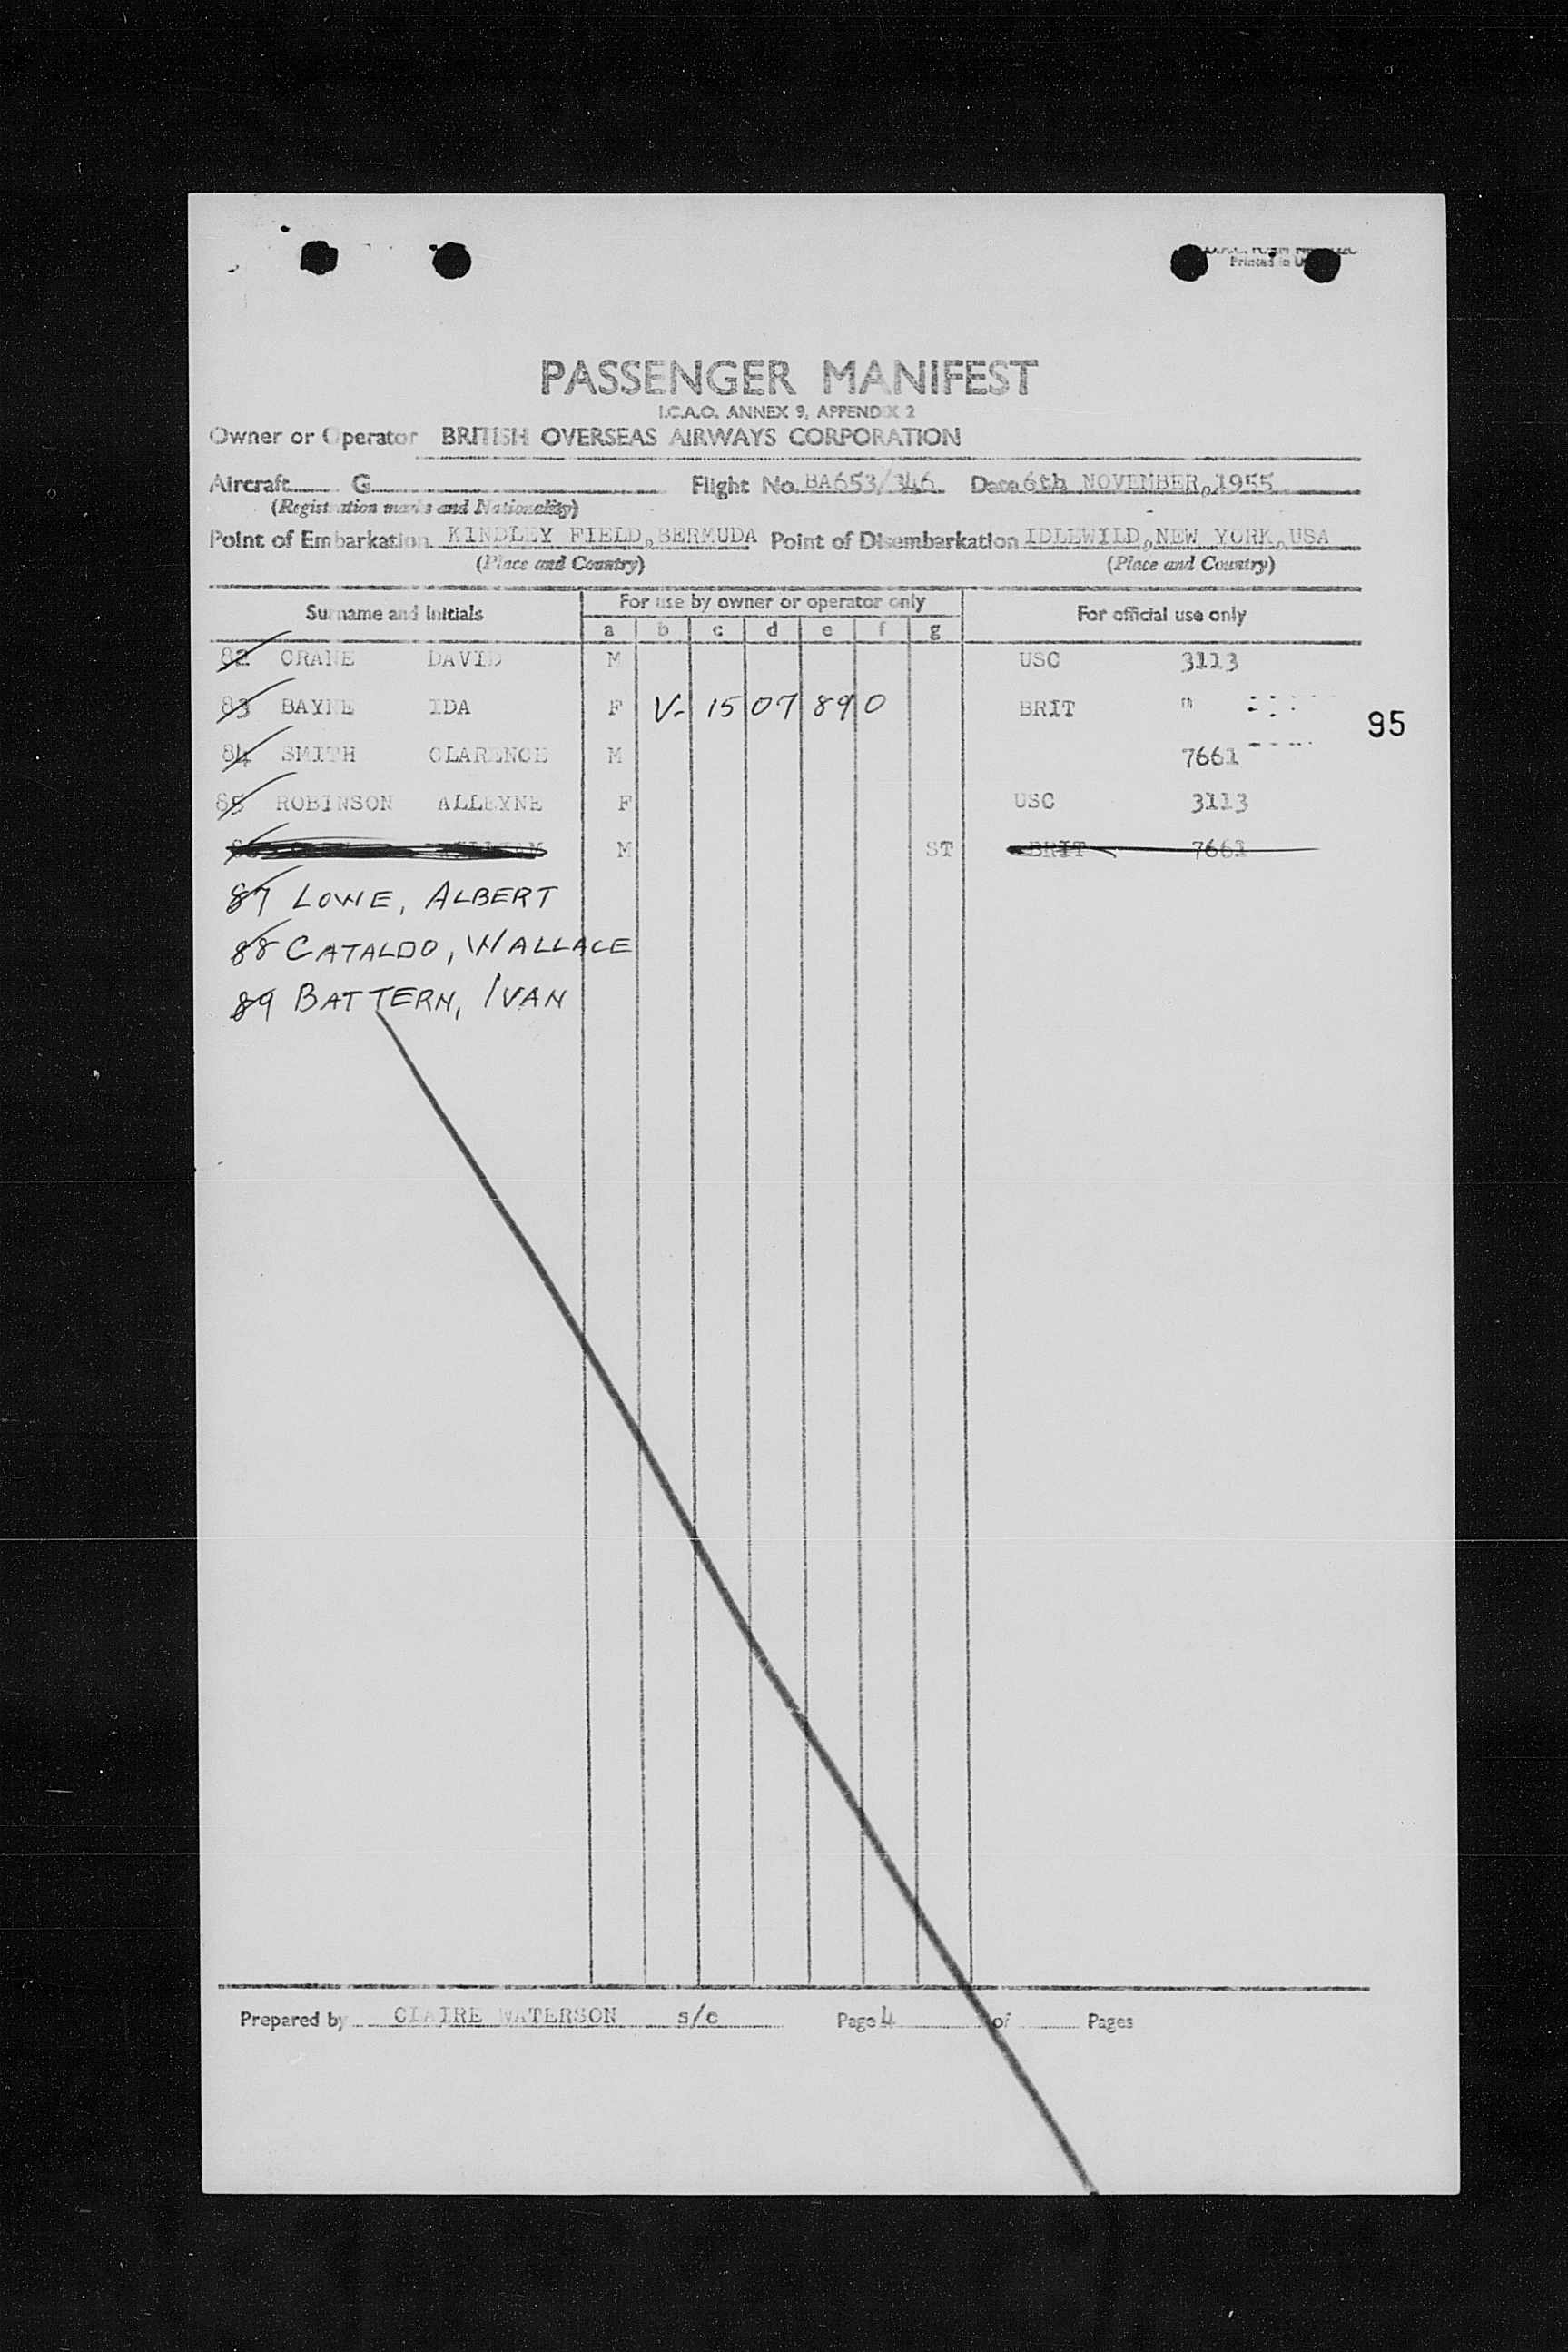 Printed in U
PASSENGER MANIFEST
I.C.A.O. ANNEX 9, APPENDIX 2
Owner or Operator BRITISH OVERSEAS AIRWAYS CORPORATION
Aircraft G Flight No. BA653/346 Date 6th NOVEMBER, 1955
(Registration marks and Nationality)
Point of Embarkation KINDLEY FIELD, BERMUDA Point of Disembarkation IDLEWILD, NEW YORK, USA
(Place and Country) (Place and Country)
Surname and Initials For use by owner or operator only For official use only
a b c d e f g
82 CRANE DAVID M USC 3113
83 BAYNE IDA F V- 15 07 89 0 BRIT "
95
84 SMITH CLARENCE M 7661
85 ROBINSON ALLEYNE F USC 3113
WILLIAM M ST BRIT 7661
87 LOWE, ALBERT
88 CATALDO, WALLACE
89 BATTERN, IVAN
Prepared by CLAIRE WATERSON s/c Page 4 of Pages